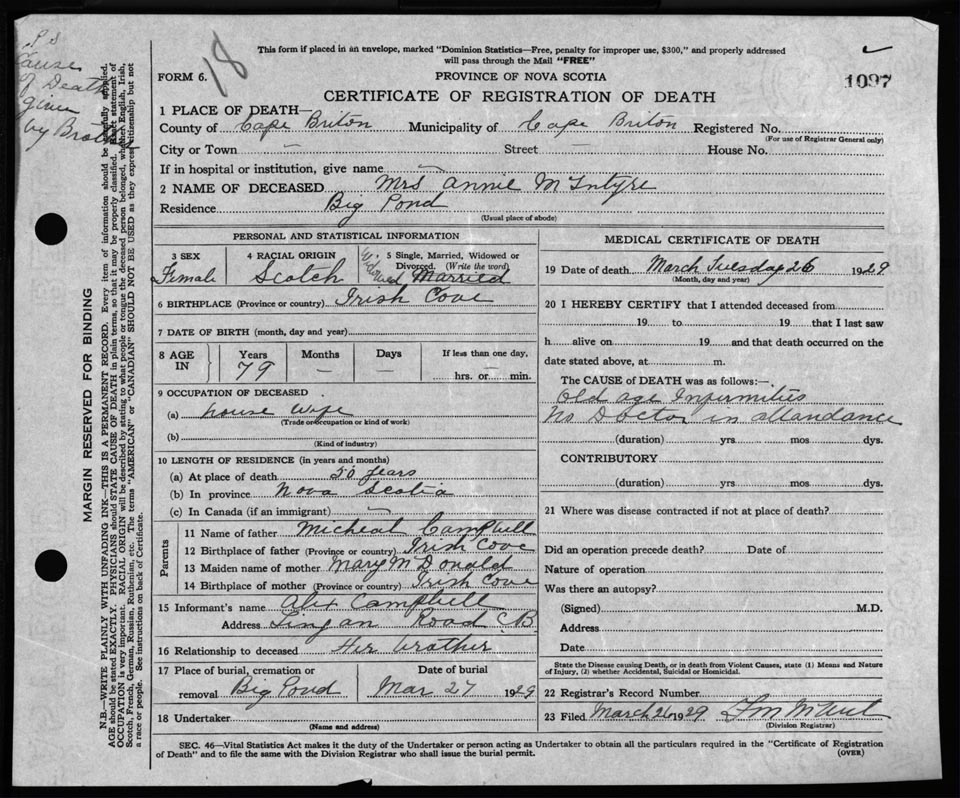 P S
Cause
of Death
given
by Brother
18
This form if placed in an envelope, marked "Dominion Statistics—Free, penalty for improper use, $300," and properly addressed
will pass through the Mail "FREE"
FORM 6.
PROVINCE OF NOVA SCOTIA
1097
CERTIFICATE OF REGISTRATION OF DEATH
1 PLACE OF DEATH—
County of Cape Briton Municipality of Cape Briton Registered No.
(For use of Registrar General only)
City or Town — Street — House No.
If in hospital or institution, give name —
2 NAME OF DECEASED Mrs Annie McIntyre
Residence Big Pond
(Usual place of abode)
PERSONAL AND STATISTICAL INFORMATION
3 SEX Female
4 RACIAL ORIGIN Scotch
5 Single, Married, Widowed or
Divorced. (Write the word)
Widowed Married
6 BIRTHPLACE (Province or country) Irish Cove
7 DATE OF BIRTH (month, day and year)
8 AGE IN Years 79 Months — Days — If less than one day,
hrs. or min.
9 OCCUPATION OF DECEASED
(a) house wife
(Trade or occupation or kind of work)
(b)
(Kind of industry)
10 LENGTH OF RESIDENCE (in years and months)
(a) At place of death 50 years
(b) In province Nova Scotia
(c) In Canada (if an immigrant) —
Parents
11 Name of father Micheal Campbell
12 Birthplace of father (Province or country) Irish Cove
13 Maiden name of mother Mary McDonald
14 Birthplace of mother (Province or country) Irish Cove
15 Informant's name Alix Campbell
Address Lingan Road CB
16 Relationship to deceased Her brother
17 Place of burial, cremation or
removal Big Pond
Date of burial
Mar 27 1929
18 Undertaker
(Name and address)
MEDICAL CERTIFICATE OF DEATH
19 Date of death March Tuesday 26 1929
(Month, day and year)
20 I HEREBY CERTIFY that I attended deceased from
19 to 19 that I last saw
h alive on 19 and that death occurred on the
date stated above, at m.
The CAUSE of DEATH was as follows:—
Old age Infirmities
No Doctor in attandance
(duration) yrs. mos. dys.
CONTRIBUTORY
(duration) yrs. mos. dys.
21 Where was disease contracted if not at place of death?
Did an operation precede death? Date of
Nature of operation
Was there an autopsy?
(Signed) M.D.
Address
Date
State the Disease causing Death, or in death from Violent Causes, state (1) Means and Nature
of Injury, (2) whether Accidental, Suicidal or Homicidal.
22 Registrar's Record Number
23 Filed March 26 1929
(Division Registrar)
SEC. 46—Vital Statistics Act makes it the duty of the Undertaker or person acting as Undertaker to obtain all the particulars required in the "Certificate of Registration
of Death" and to file the same with the Division Registrar who shall issue the burial permit.
(OVER)
MARGIN RESERVED FOR BINDING
N.B.—WRITE PLAINLY WITH UNFADING INK—THIS IS A PERMANENT RECORD. Every item of information should be carefully supplied.
AGE should be stated EXACTLY. PHYSICIANS should STATE CAUSE OF DEATH in plain terms, so that it may be properly classified. Exact statement of
OCCUPATION is very important. RACIAL ORIGIN will be described by stating to what people or tongue the deceased person belonged, whether English, Irish,
Scotch, French, German, Russian, Ruthenian, etc. The terms "AMERICAN" or "CANADIAN" SHOULD NOT BE USED as they express citizenship but not
a race or people. See instructions on back of Certificate.